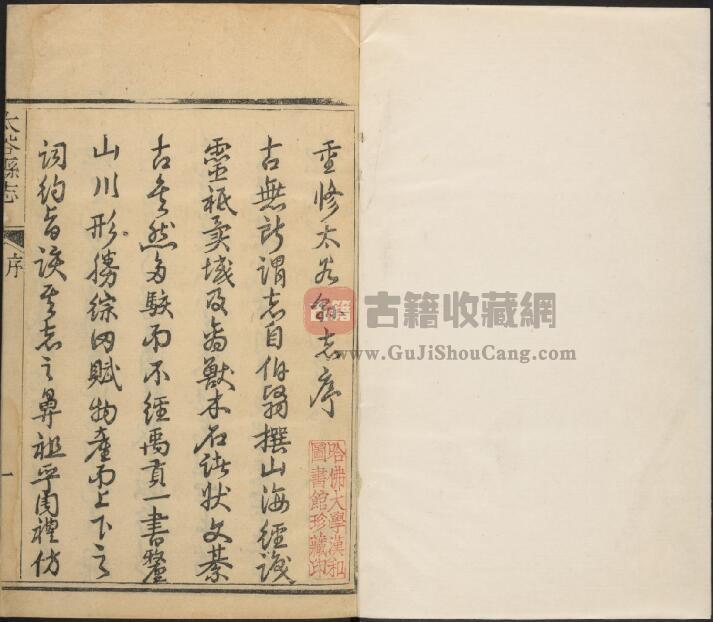 重修太谷縣志序
哈佛大學漢和
圖書館珍藏印
古無所謂志自伯翳撰山海經識
靈祇異域及禽獸木石諸狀文綦
古矣然多駁而不經禹貢一書釐
山川形勝綜田賦物產而上下之
詞約旨該其志之鼻祖乎周禮仿
太谷縣志
序
一
古籍
古籍收藏網
www.GuJiShouCang.com